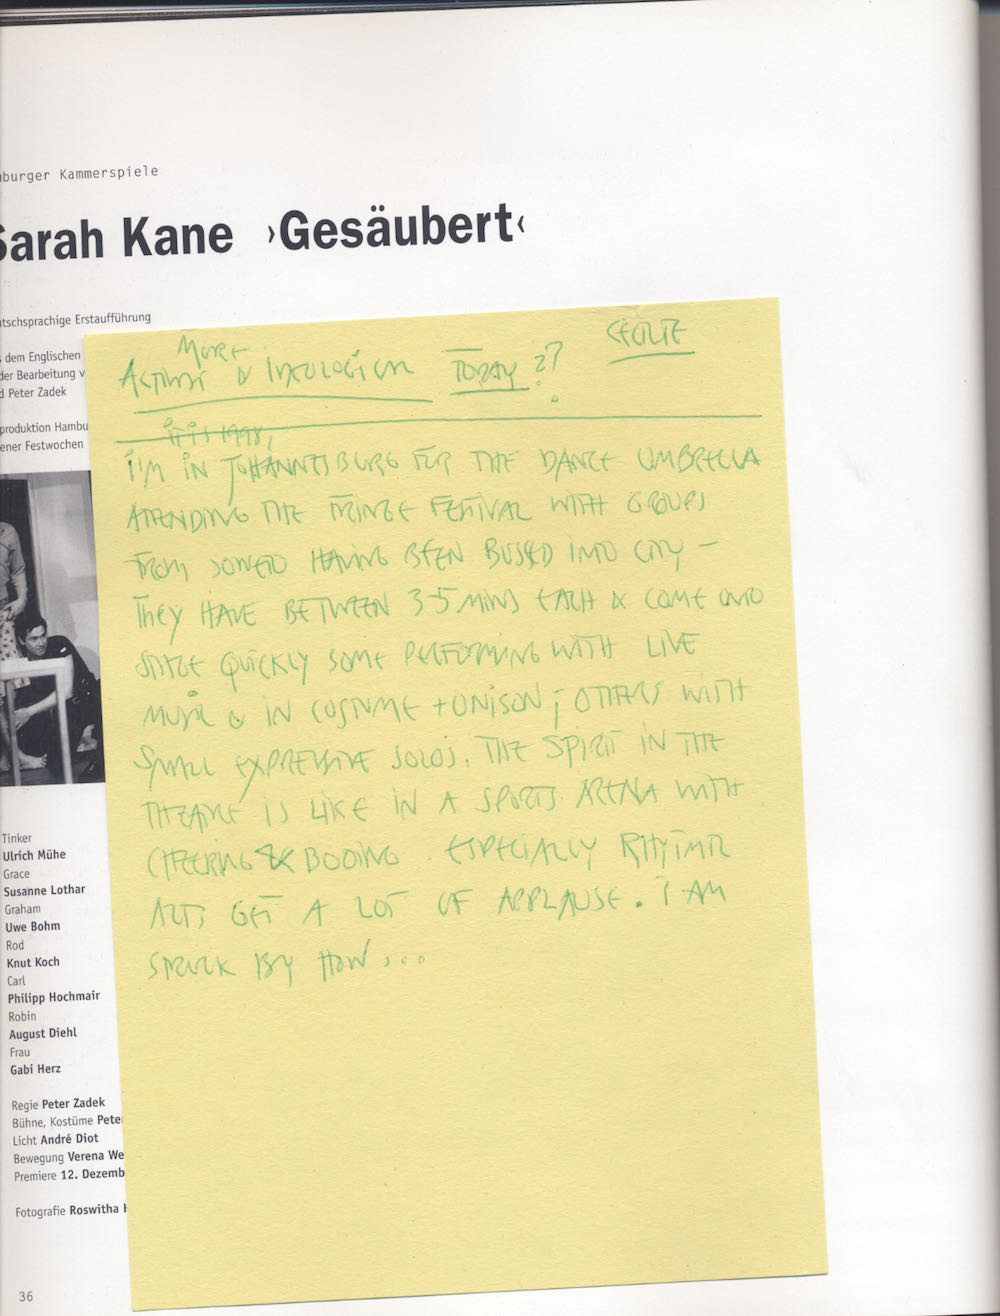 burger Kammerspiele
Sarah Kane ›Gesäubert‹
tschsprachige Erstaufführung
dem Englischen
der Bearbeitung v
d Peter Zadek
produktion Hambu
ener Festwochen
CECILIE
MORE
ACTIVIST & IDEOLOGICAL TODAY ??
it is 1998,
I'M IN JOHANNESBURG FOR THE DANCE UMBRELLA
ATTENDING THE FRINGE FESTIVAL WITH GROUPS
FROM SOWETO HAVING BEEN BUSSED INTO CITY –
THEY HAVE BETWEEN 3-5 MINS EACH & COME ONTO
STAGE QUICKLY SOME PERFORMING WITH LIVE
MUSIC & IN COSTUME + UNISON; OTHERS WITH
SMALL EXPRESSIVE SOLOS. THE SPIRIT IN THE
THEATRE IS LIKE IN A SPORTS ARENA WITH
CHEERING & BOOING. ESPECIALLY RHYTHMIC
ACTS GET A LOT OF APPLAUSE. I AM
STRUCK BY HOW...
Tinker
Ulrich Mühe
Grace
Susanne Lothar
Graham
Uwe Bohm
Rod
Knut Koch
Carl
Philipp Hochmair
Robin
August Diehl
Frau
Gabi Herz
Regie Peter Zadek
Bühne, Kostüme Pete
Licht André Diot
Bewegung Verena We
Premiere 12. Dezemb
Fotografie Roswitha
36